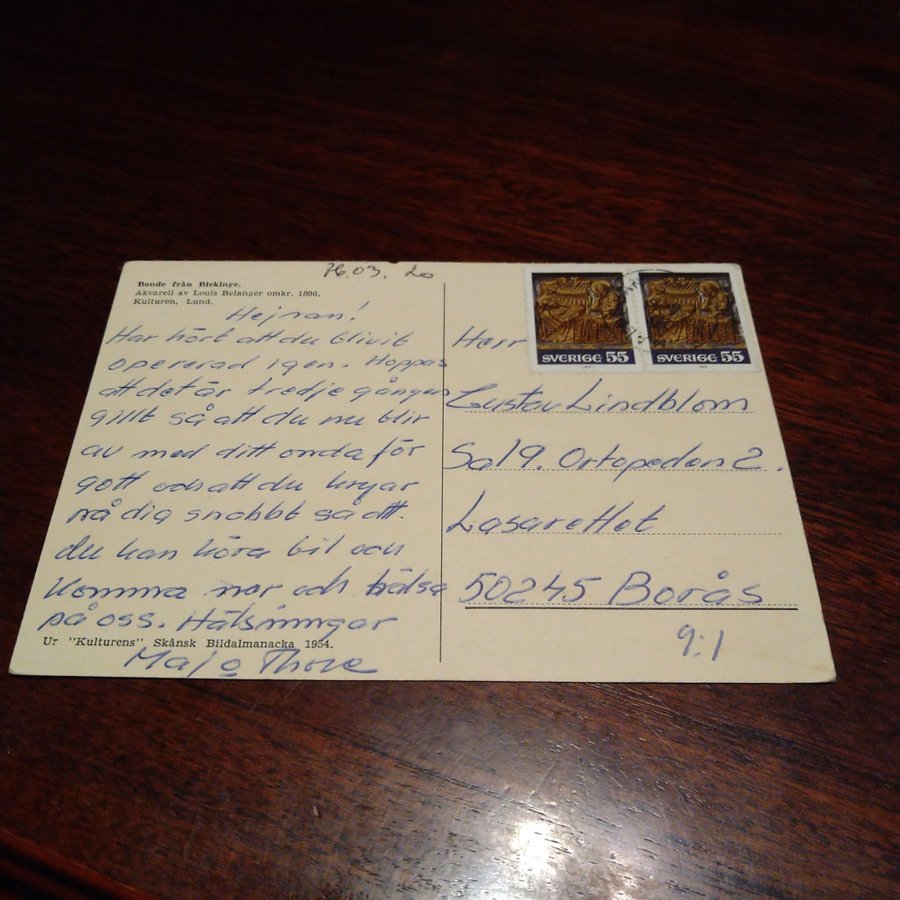 76.03. 20
Bonde från Blekinge.
Akvarell av Louis Belanger omkr. 1800.
Kulturen, Lund.
Hejsan!
Har hört att du blivit
opererad igen. Hoppas
att det är tredje gången
gillt så att du nu blir
av med ditt onda för
gott och att du
dig snabbt så att
du kan köra bil och
komma ner och hälsa
på oss. Hälsningar
Ur "Kulturens" Skånsk Bildalmanacka 1954.
Maj o Thore
SVERIGE 55
SVERIGE 55
Herr
Gustav Lindblom
Sal 9. Ortopeden 2.
Lasarettet
50245 Borås
9:1